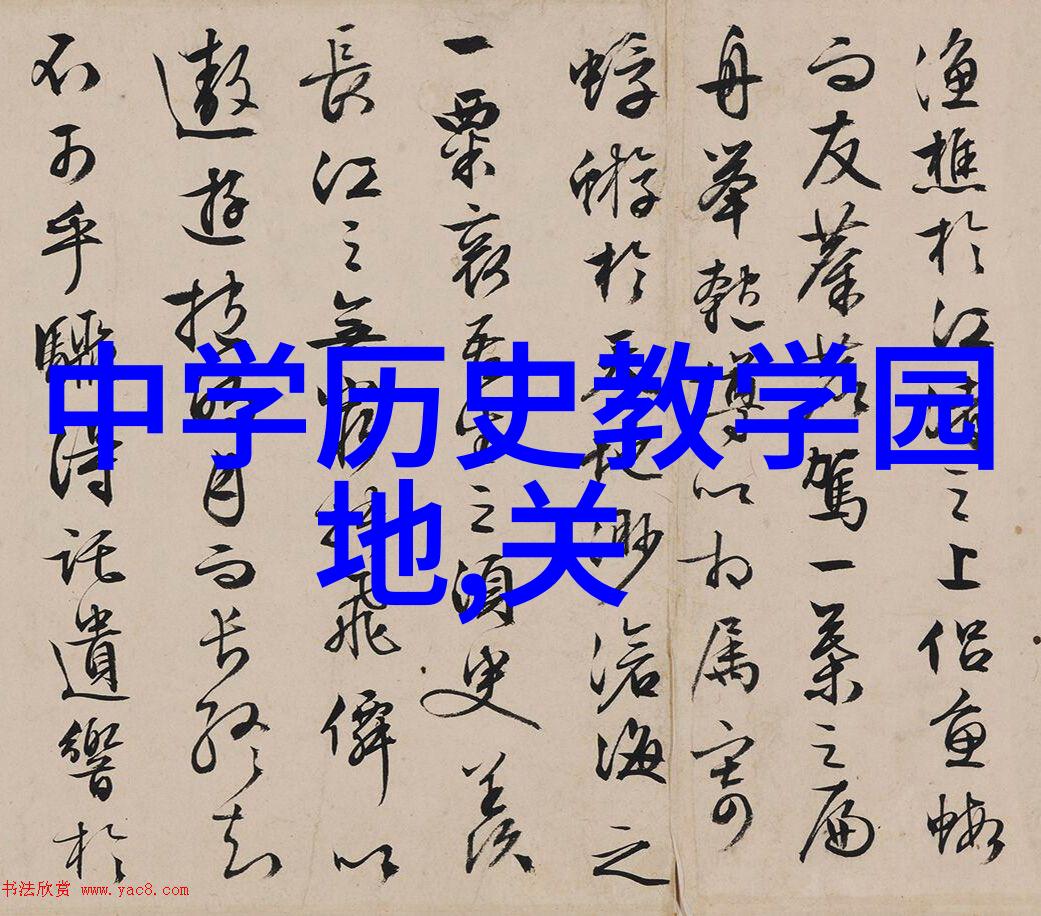 漁樵於江渚之上侣魚蝦
而友麋鹿駕一葉之扁
舟舉匏樽以相属寄
蜉蝣於天地渺滄海之
一粟哀吾生之須臾羨
長江之無窮挾飛僊以
遨遊抱明月而長終知
不可乎驟得託遺響於
中学历史教学园
地,关
书法欣赏 www.yac8.com